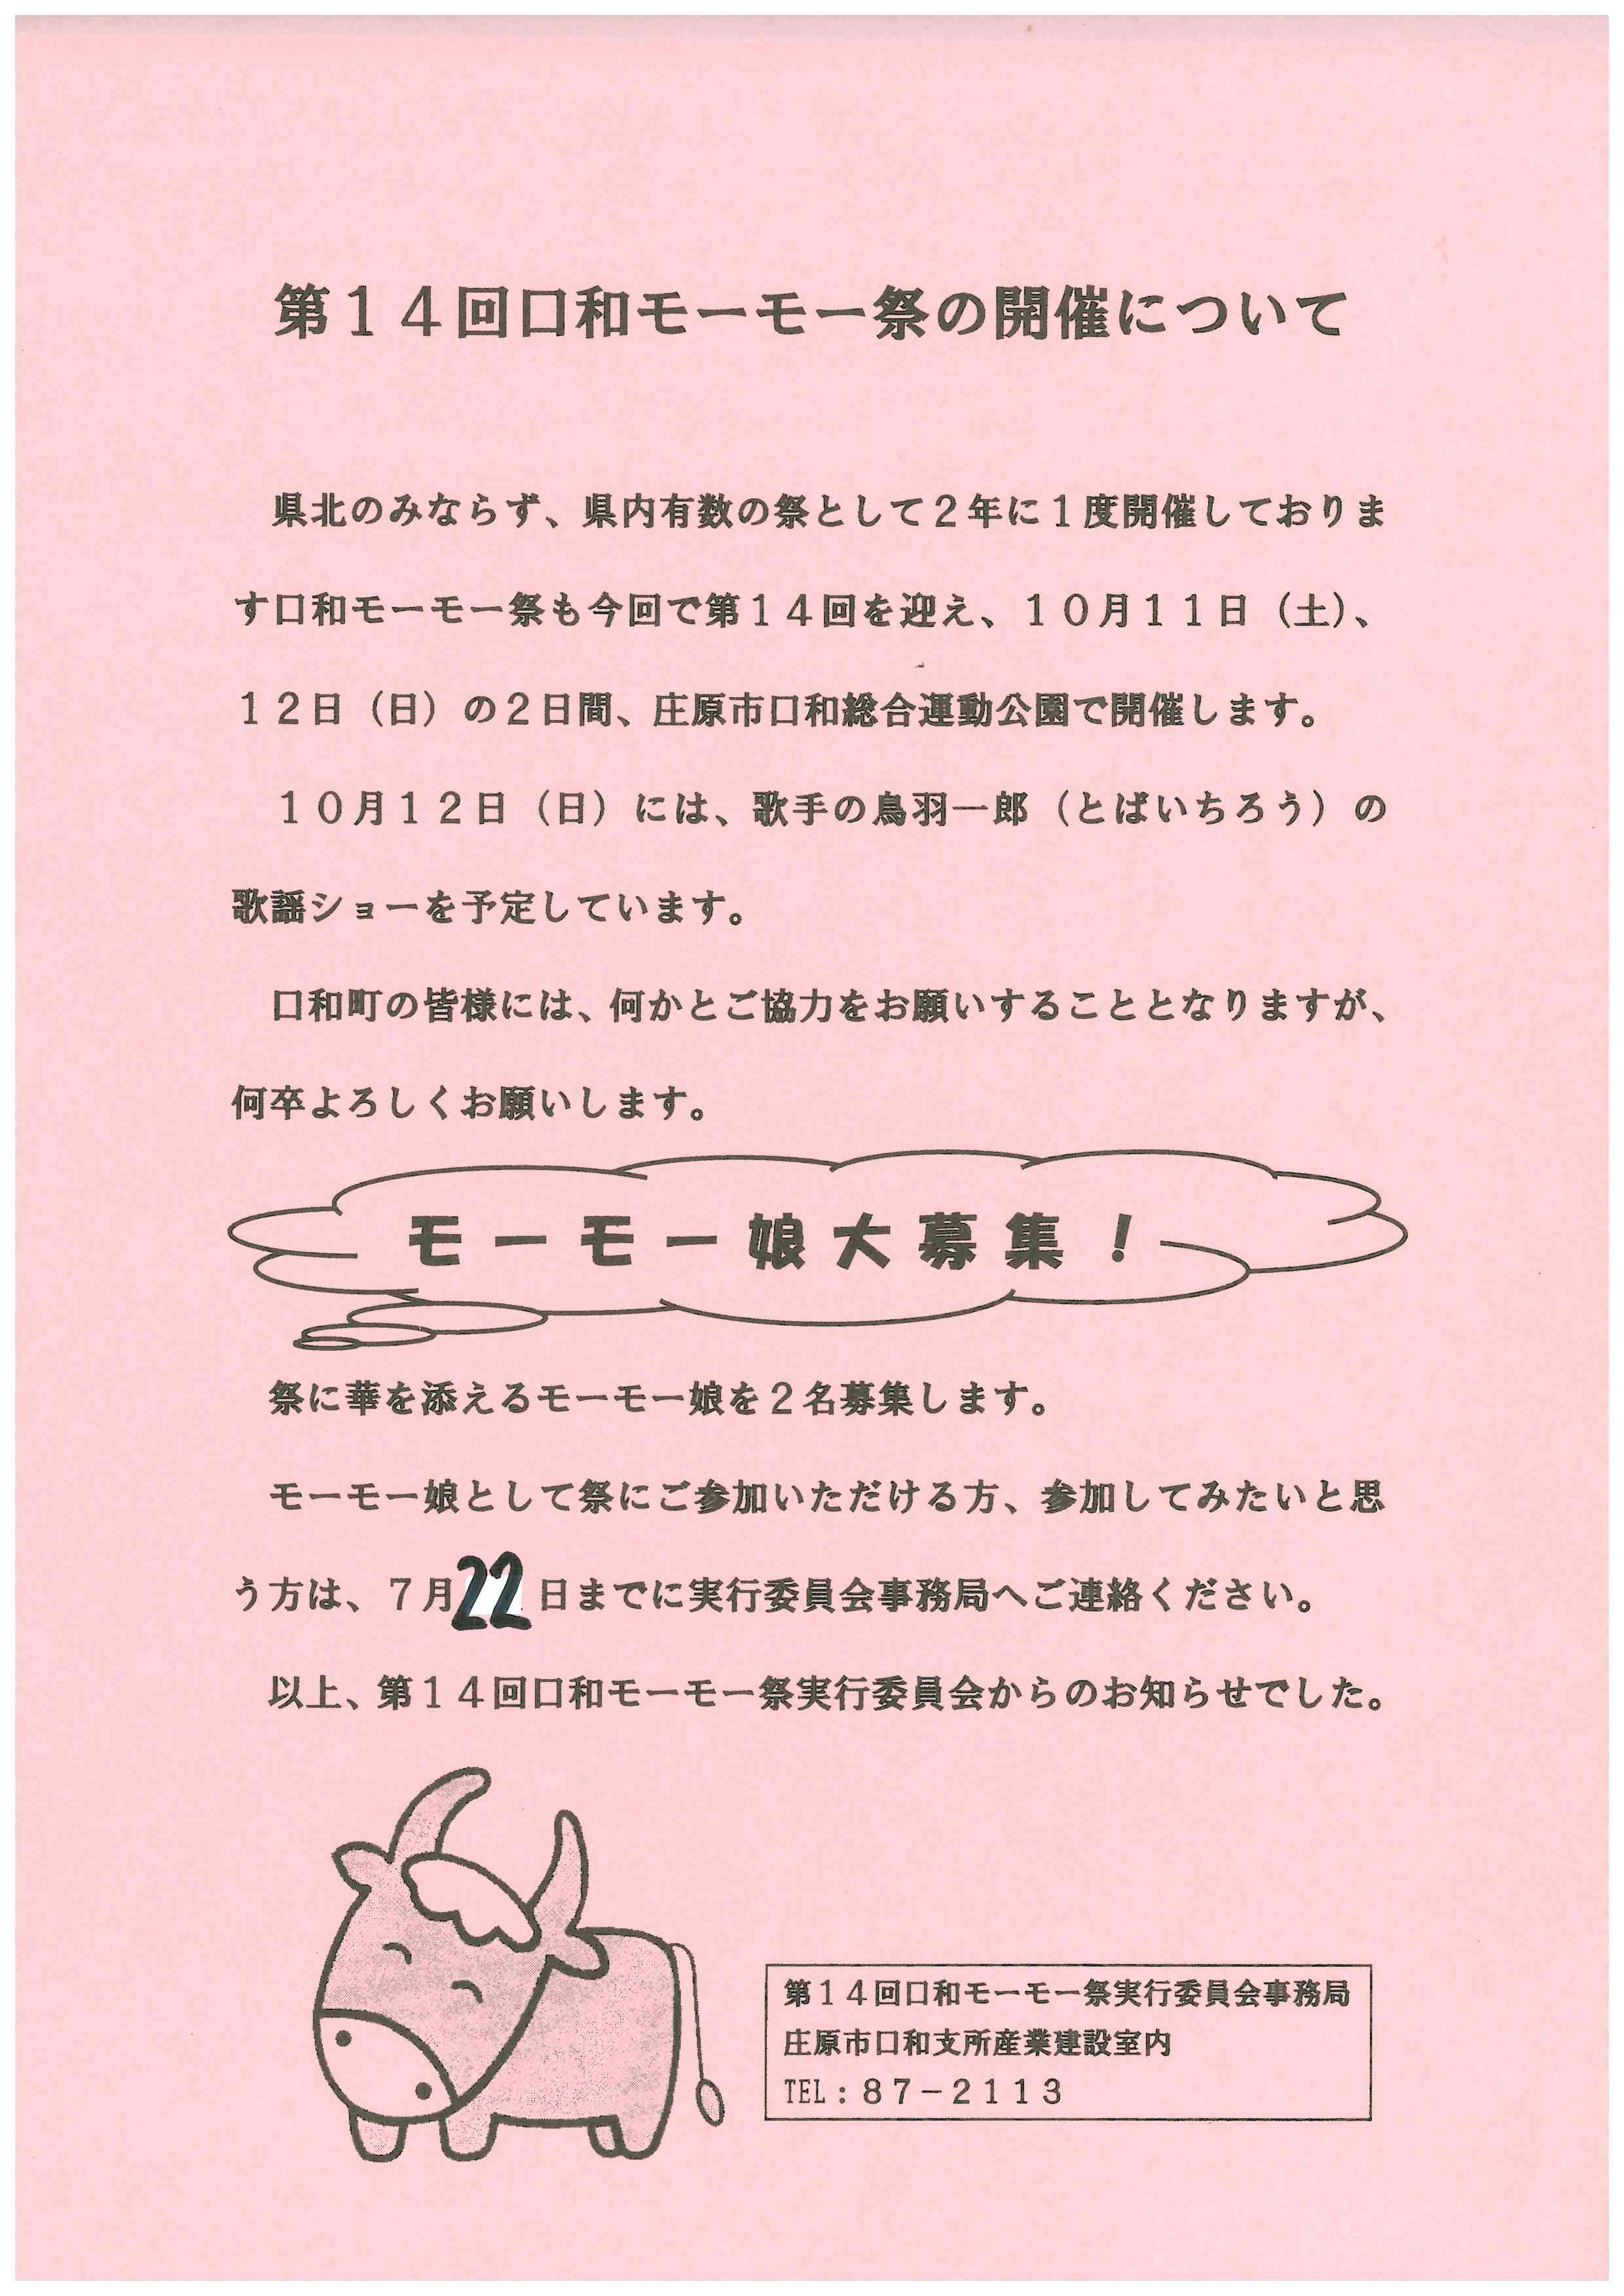 第１４回口和モーモー祭の開催について
県北のみならず、県内有数の祭として２年に１度開催しておりま
す口和モーモー祭も今回で第１４回を迎え、１０月１１日（土）、
１２日（日）の２日間、庄原市口和総合運動公園で開催します。
１０月１２日（日）には、歌手の鳥羽一郎（とばいちろう）の
歌謡ショーを予定しています。
口和町の皆様には、何かとご協力をお願いすることとなりますが、
何卒よろしくお願いします。
モーモー娘大募集！
祭に華を添えるモーモー娘を２名募集します。
モーモー娘として祭にご参加いただける方、参加してみたいと思
う方は、７月22日までに実行委員会事務局へご連絡ください。
以上、第１４回口和モーモー祭実行委員会からのお知らせでした。
第１４回口和モーモー祭実行委員会事務局
庄原市口和支所産業建設室内
TEL：８７－２１１３